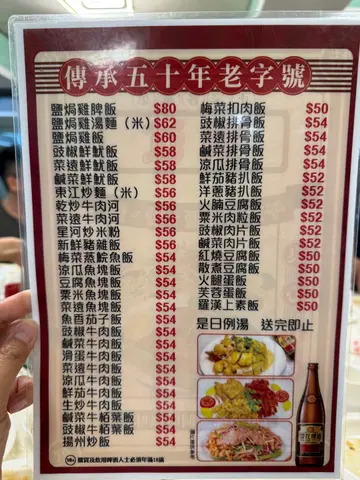 傳承五十年老字號
鹽焗雞脾飯 $80
鹽焗雞湯麵（米） $62
鹽焗雞飯 $60
豉椒鮮魷飯 $58
菜遠鮮魷飯 $58
鹹菜鮮魷飯 $58
東江炒麵（米） $56
乾炒牛肉河 $56
菜遠牛肉河 $56
星河炒米粉 $56
新鮮豬雜飯 $56
梅菜蒸鯇魚飯 $54
涼瓜魚塊飯 $54
豆腐魚塊飯 $54
粟米魚塊飯 $54
魚香茄子飯 $54
豉椒牛肉飯 $54
鹹菜牛肉飯 $54
滑蛋牛肉飯 $54
菜遠牛肉飯 $54
涼瓜牛肉飯 $54
鮮茄牛肉飯 $54
生炒牛肉飯 $54
鹹菜牛栢葉飯 $54
豉椒牛栢葉飯 $54
揚州炒飯 $54
梅菜扣肉飯 $50
豉椒排骨飯 $54
菜遠排骨飯 $54
鹹菜排骨飯 $54
涼瓜排骨飯 $54
鮮茄豬扒飯 $52
洋蔥豬扒飯 $52
火腩豆腐飯 $52
粟米肉粒飯 $52
豉椒肉片飯 $52
鹹菜肉片飯 $52
紅燒豆腐飯 $50
散煮豆腐飯 $50
火腿蛋飯 $50
芙蓉蛋飯 $50
羅漢上素飯 $50
是日例湯 送完即止
購買及飲用啤酒人士必須年滿18歲